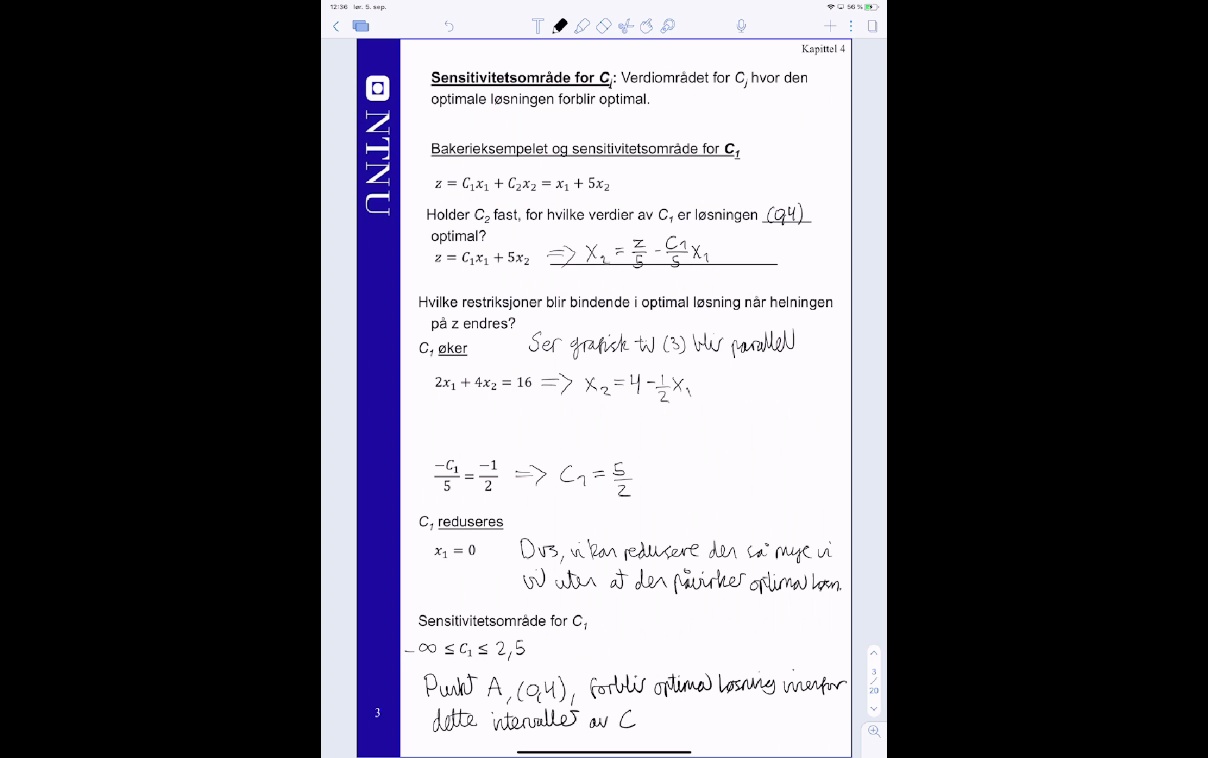 12:36 lør. 5. sep.
56 %
Kapittel 4
NTNU
Sensitivitetsområde for Cj: Verdiområdet for Cj hvor den
optimale løsningen forblir optimal.
Bakerieksempelet og sensitivitetsområde for C1
z = C1x1 + C2x2 = x1 + 5x2
Holder C2 fast, for hvilke verdier av C1 er løsningen (0,4)
optimal?
z = C1x1 + 5x2 => x2 = z/5 - C1/5 x1
Hvilke restriksjoner blir bindende i optimal løsning når helningen
på z endres?
C1 øker Ser grafisk at (3) blir parallell
2x1 + 4x2 = 16 => x2 = 4 - 1/2 x1
-C1/5 = -1/2 => C1 = 5/2
C1 reduseres
x1 = 0 Dvs, vi kan redusere den så mye vi
vil uten at den påvirker optimal løsn.
Sensitivitetsområde for C1
-∞ ≤ C1 ≤ 2,5
Punkt A, (0,4), forblir optimal løsning innenfor
dette intervallet av C
3
3
/
20